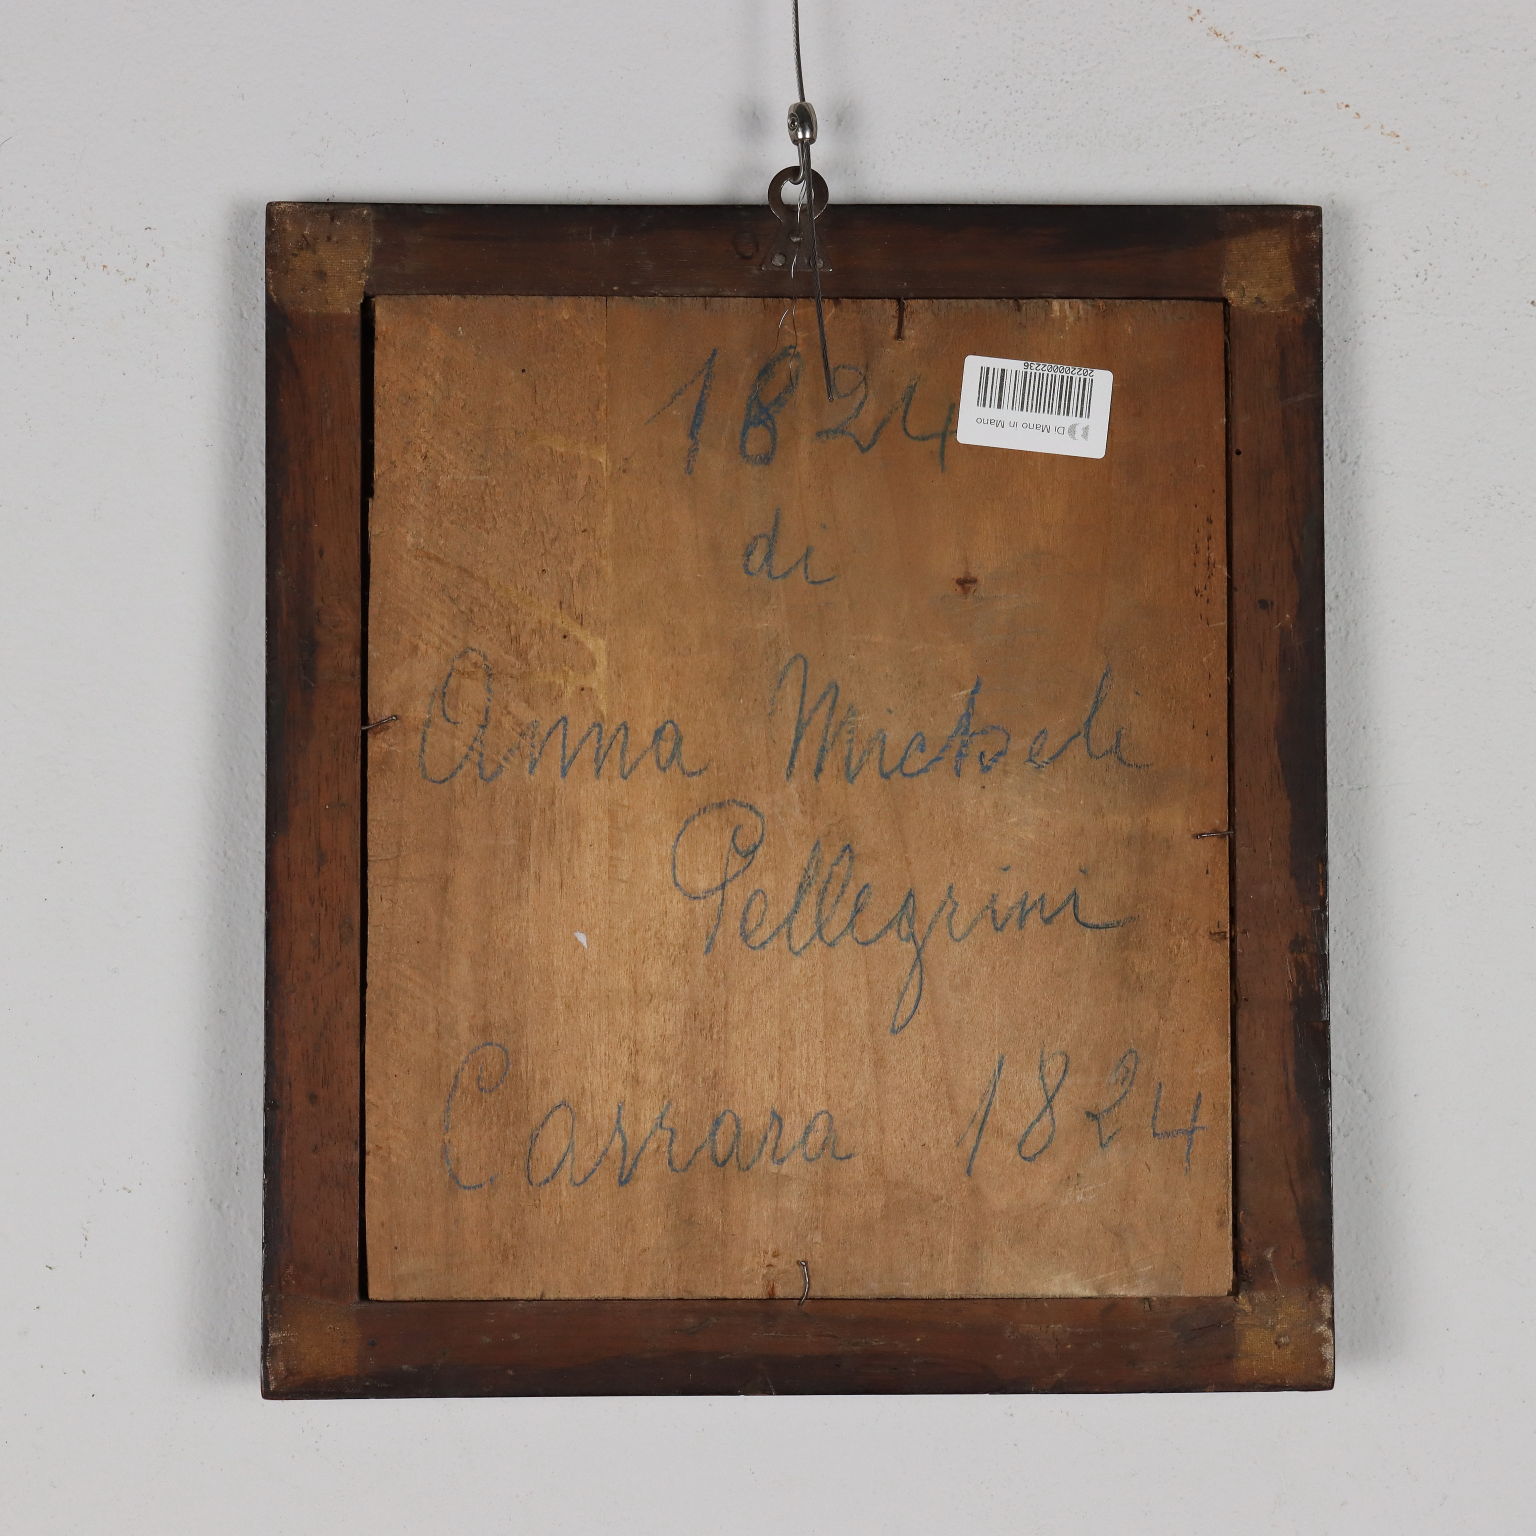 1824
di
Anna Micheli
Pellegrini
Carrara 1824
Di Mano in Mano
2022000002236